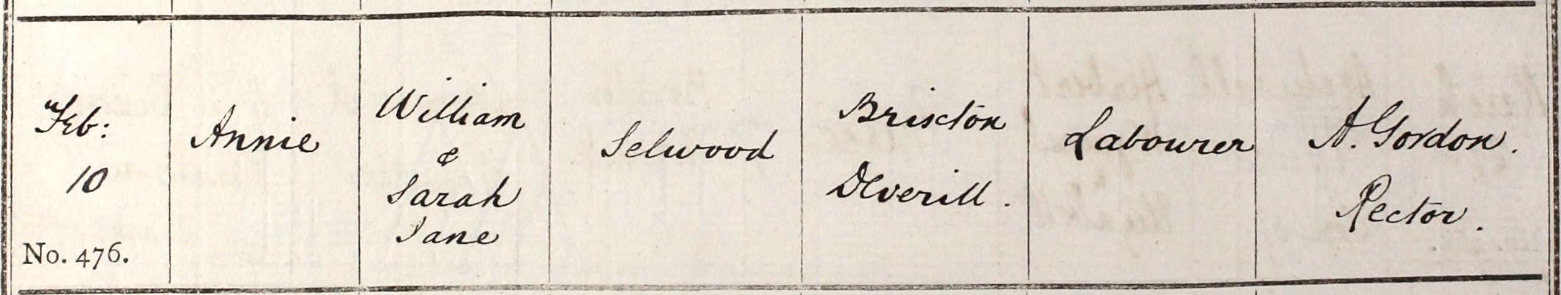 Feb:
10
No. 476.
Annie
William
&
Sarah
Jane
Selwood
Brixton
Deverill.
Labourer
A. Gordon.
Rector.